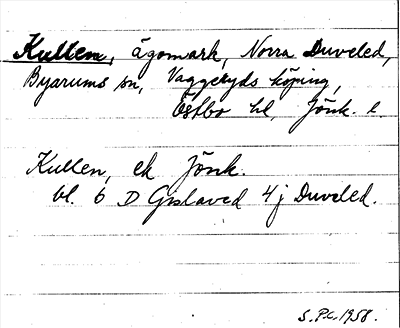 Kullen, ägomark, Norra Duveled,
Byarums sn, Vaggeryds köping,
Östbo hd, Jönk. l.
Kullen, ek Jönk.
bl. 6 D Gislaved 4 j Duveled.
S.P.C. 1958.